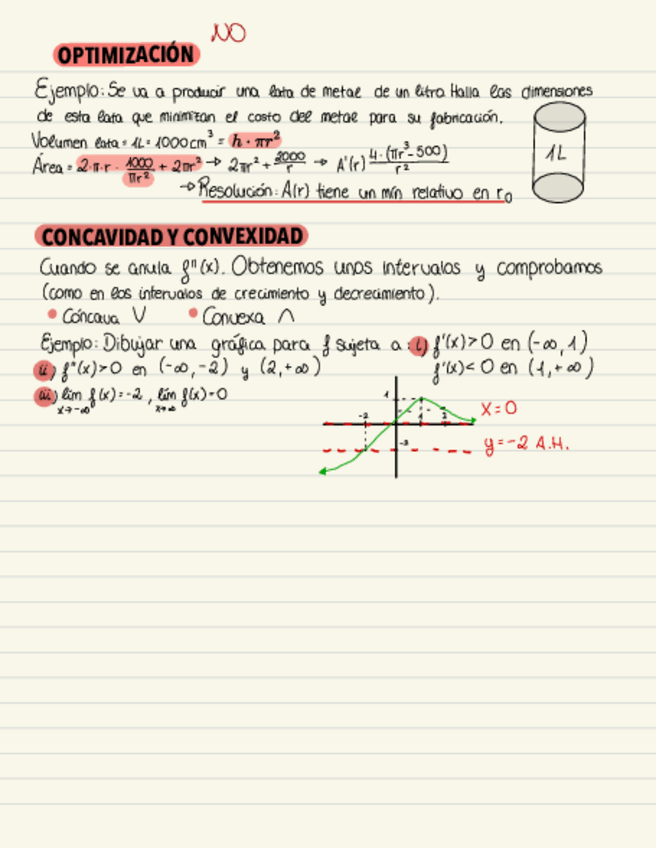 NO
OPTIMIZACIÓN
Ejemplo: Se va a producir una lata de metal de un litro. Halla las dimensiones
de esta lata que minimizan el costo del metal para su fabricación.
Volumen lata = 1L = 1000cm³ = h · πr²
Área = 2·π·r · 1000/πr² + 2πr² → 2πr² + 2000/r → A'(r) 4·(πr³-500)/r²
1L
→ Resolución: A(r) tiene un mín relativo en r₀
CONCAVIDAD Y CONVEXIDAD
Cuando se anula f''(x). Obtenemos unos intervalos y comprobamos
(como en los intervalos de crecimiento y decrecimiento).
• Cóncava ∪ • Convexa ∩
Ejemplo: Dibujar una gráfica para f sujeta a: i) f'(x)>0 en (-∞, 1)
ii) f''(x)>0 en (-∞, -2) y (2, +∞) f'(x)<0 en (1, +∞)
iii) lím x→-∞ f(x)=-2, lím x→∞ f(x)=0
1
-2 1 2
X=0
-2
y=-2 A.H.